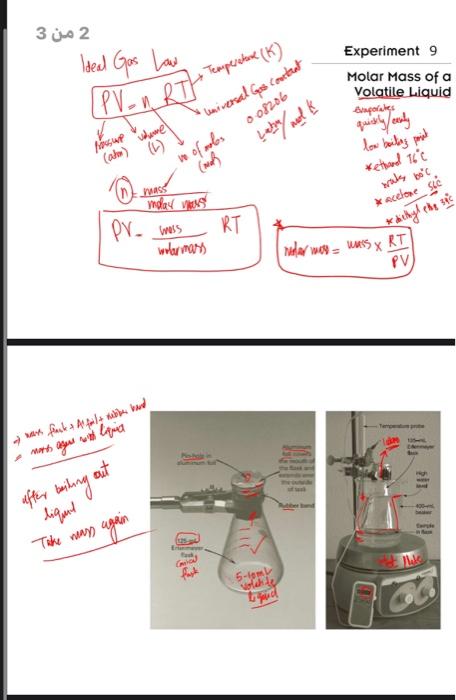 2 من 3
Experiment 9
Molar Mass of a
Volatile Liquid
evaporates
quickly/easily
low boiling point
* ethanol 78°C
water 100°C
* acetone 56°C
Ideal Gas Law
PV = n RT
Temperature (K)
universal Gas constant
0.08206
L atm/mol K
Pressure
(atm)
volume
(L)
no of moles
(mol)
n = mass
molar mass
PV = mass RT
molar mass
* molar mass = mass × RT
PV
=> mass flask + Al foil + rubber band
= mass again with liquid
after boiling out
liquid
Take mass again
Pin-hole in
aluminum foil
Aluminum
foil covers
the mouth of
the flask and
extends over
the outside
of flask
Rubber band
125-mL
Erlenmeyer
flask
Conical
flask
5-10mL
volatile
liquid
Temperature probe
125-mL
Erlenmeyer
flask
High
water
level
400-mL
beaker
Sample
in flask
Hot Plate